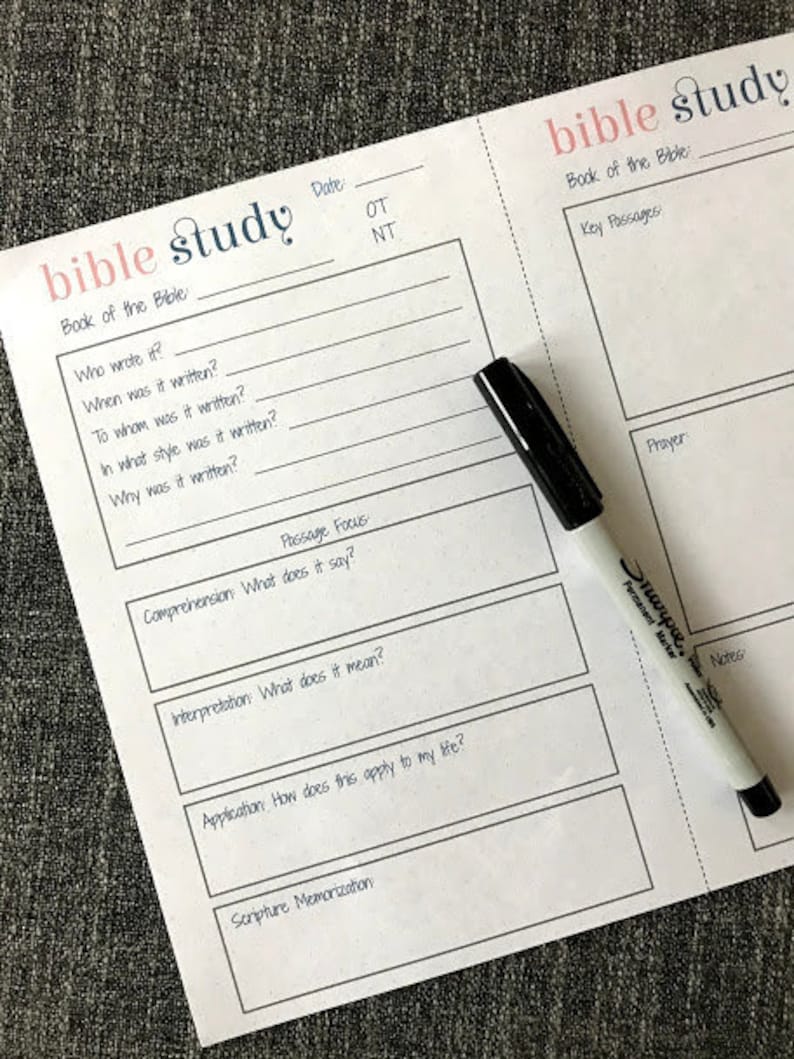 bible study
Date:
OT
NT
Book of the Bible:
Who wrote it?
When was it written?
To whom was it written?
In what style was it written?
Why was it written?
Passage Focus:
Comprehension: What does it say?
Interpretation: What does it mean?
Application: How does this apply to my life?
Scripture Memorization:
bible study
Book of the Bible:
Key Passages:
Prayer:
Notes:
Sharpie
Permanent Marker